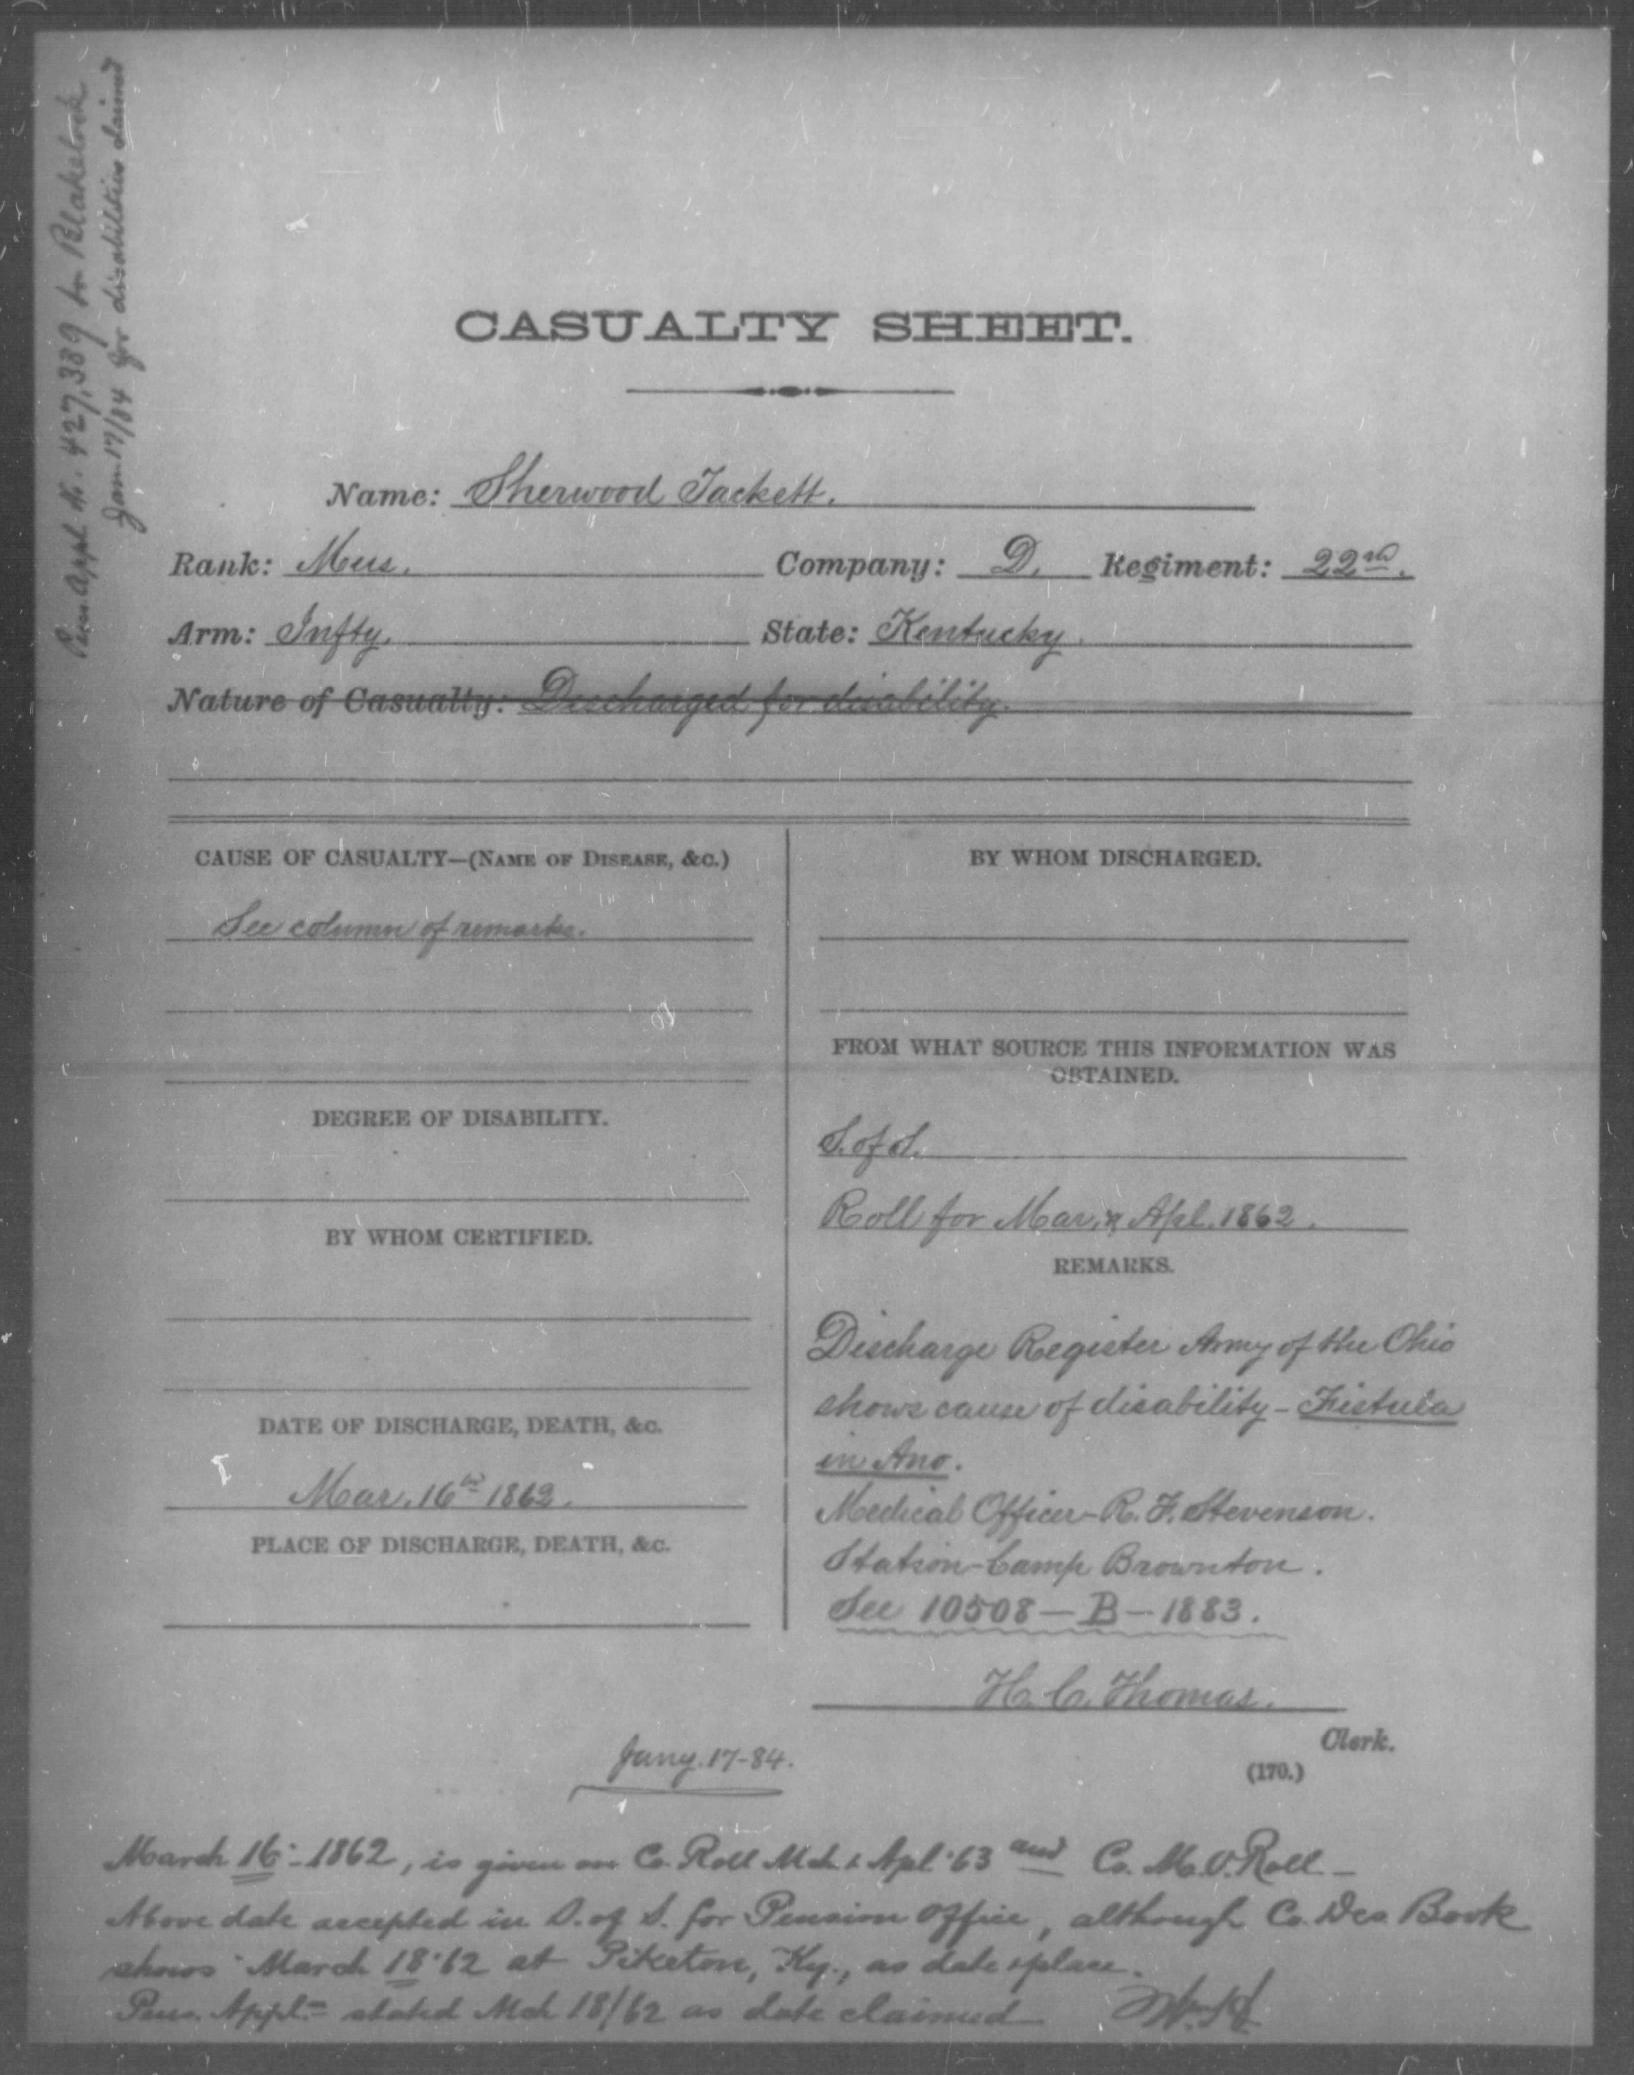 Pen. Appl. No. 427,389 to Blakelock
Jan. 17/84 for disabilities claimed
CASUALTY SHEET.
Name: Sherwood Tackett.
Rank: Mus. Company: D. Regiment: 22nd.
Arm: Infty. State: Kentucky.
Nature of Casualty: Discharged for disability.
CAUSE OF CASUALTY—(NAME OF DISEASE, &c.)
See column of remarks.
DEGREE OF DISABILITY.
BY WHOM CERTIFIED.
DATE OF DISCHARGE, DEATH, &c.
Mar. 16th 1862.
PLACE OF DISCHARGE, DEATH, &c.
BY WHOM DISCHARGED.
FROM WHAT SOURCE THIS INFORMATION WAS
OBTAINED.
S. of S.
Roll for Mar. & Apl. 1862.
REMARKS.
Discharge Register Army of the Ohio
shows cause of disability - Fistula
in Ano.
Medical Officer - R. F. Stevenson.
Station - Camp Brownton.
See 10508 — B — 1883.
H. C. Thomas.
Clerk.
(170.)
Jany. 17-84.
March 16 - 1862, is given on Co. Roll Mch & Apl '63 and Co. M.O. Roll -
Above date accepted in S. of S. for Pension Office, although Co. Des. Book
shows March 18 '62 at Piketon, Ky., as date & place.
Pen. Appln stated Mch 18/62 as date claimed